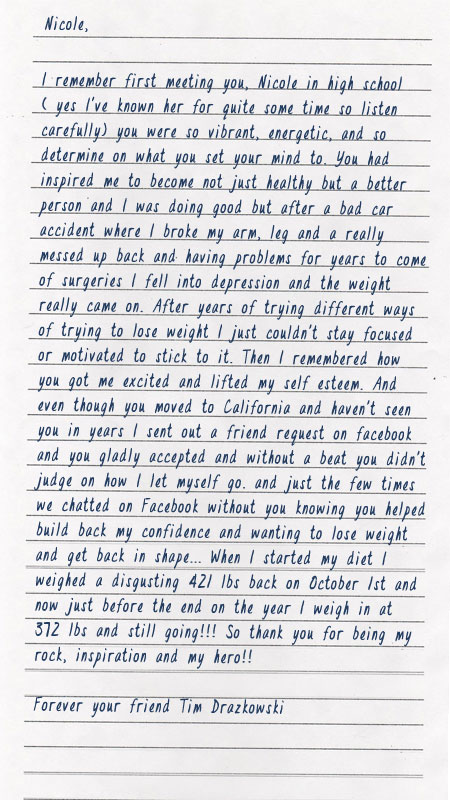 Nicole,
I remember first meeting you, Nicole in high school
( yes I've known her for quite some time so listen
carefully) you were so vibrant, energetic, and so
determine on what you set your mind to. You had
inspired me to become not just healthy but a better
person and I was doing good but after a bad car
accident where I broke my arm, leg and a really
messed up back and having problems for years to come
of surgeries I fell into depression and the weight
really came on. After years of trying different ways
of trying to lose weight I just couldn't stay focused
or motivated to stick to it. Then I remembered how
you got me excited and lifted my self esteem. And
even though you moved to California and haven't seen
you in years I sent out a friend request on facebook
and you gladly accepted and without a beat you didn't
judge on how I let myself go. and just the few times
we chatted on Facebook without you knowing you helped
build back my confidence and wanting to lose weight
and get back in shape... When I started my diet I
weighed a disgusting 421 lbs back on October 1st and
now just before the end on the year I weigh in at
372 lbs and still going!!! So thank you for being my
rock, inspiration and my hero!!
Forever your friend Tim Drazkowski